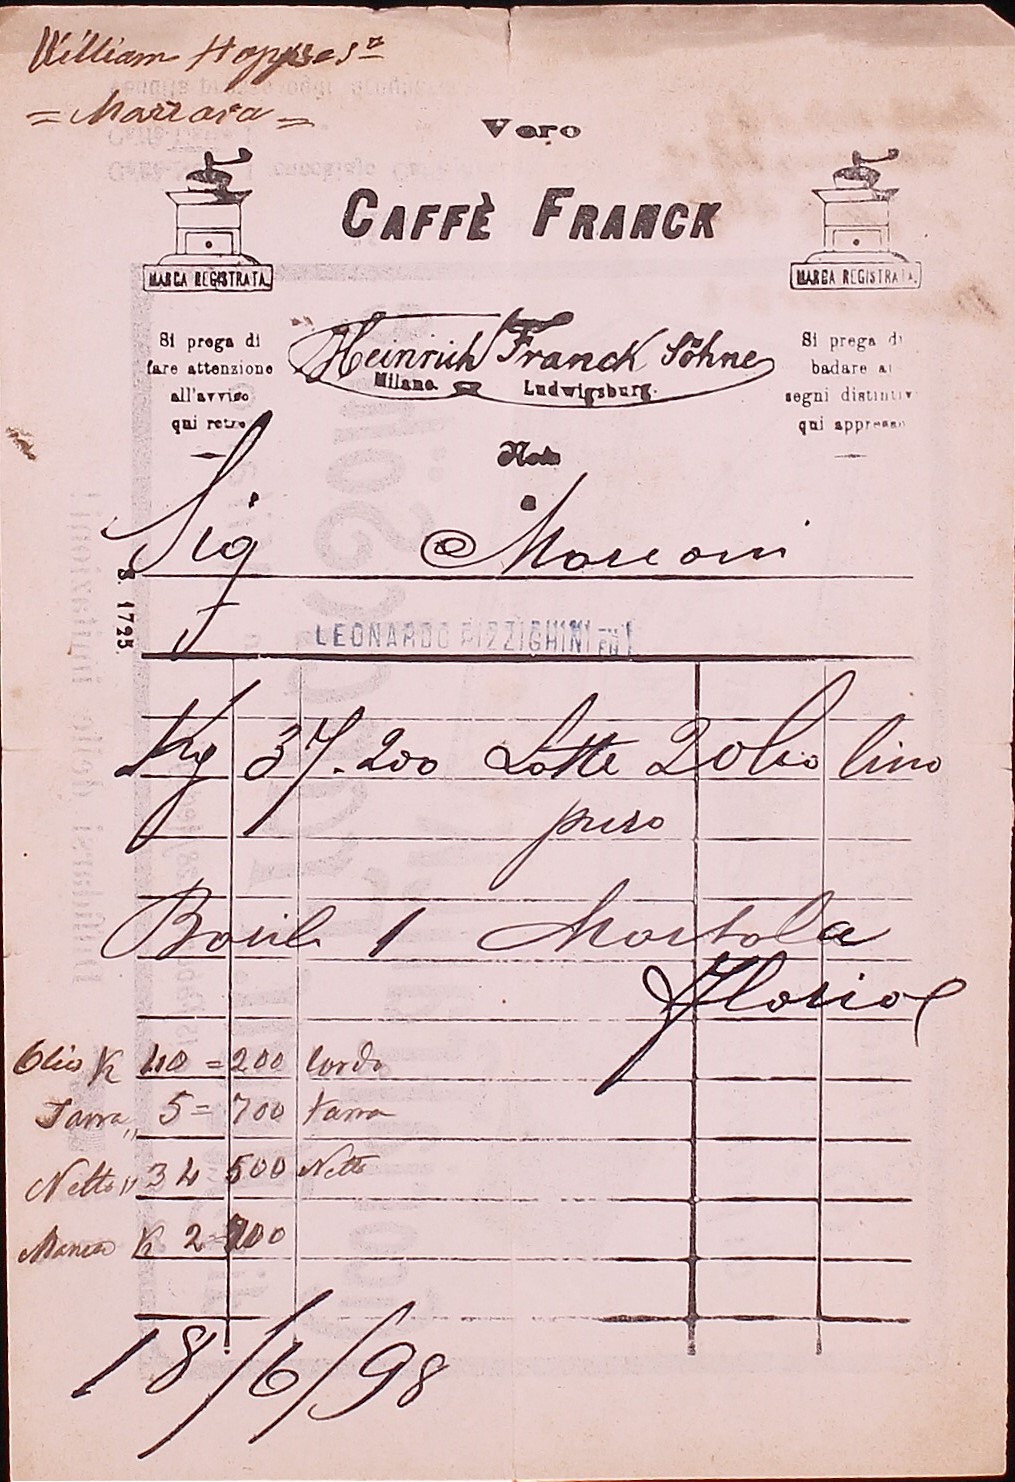 William Hopps
= Mazzara =
Vero
CAFFÈ FRANCK
MARCA REGISTRATA.
MARCA REGISTRATA.
Si prega di
fare attenzione
all'avviso
qui retro
Heinrich Franck Söhne
Milano Ludwigsburg.
Si prega di
badare ai
segni distintiv
qui appresso
Nota
Sig
S. 1725.
LEONARDO RIZZIGHINI FU
Kg 37.200 Latte 2 olio lino
puro
Barile 1 Mortola
Florio
Olio K 40 = 200 lordo
Tarra " 5 = 700 tarra
Netto " 34 500 Netto
Manca K 2 = 700
18/6/98